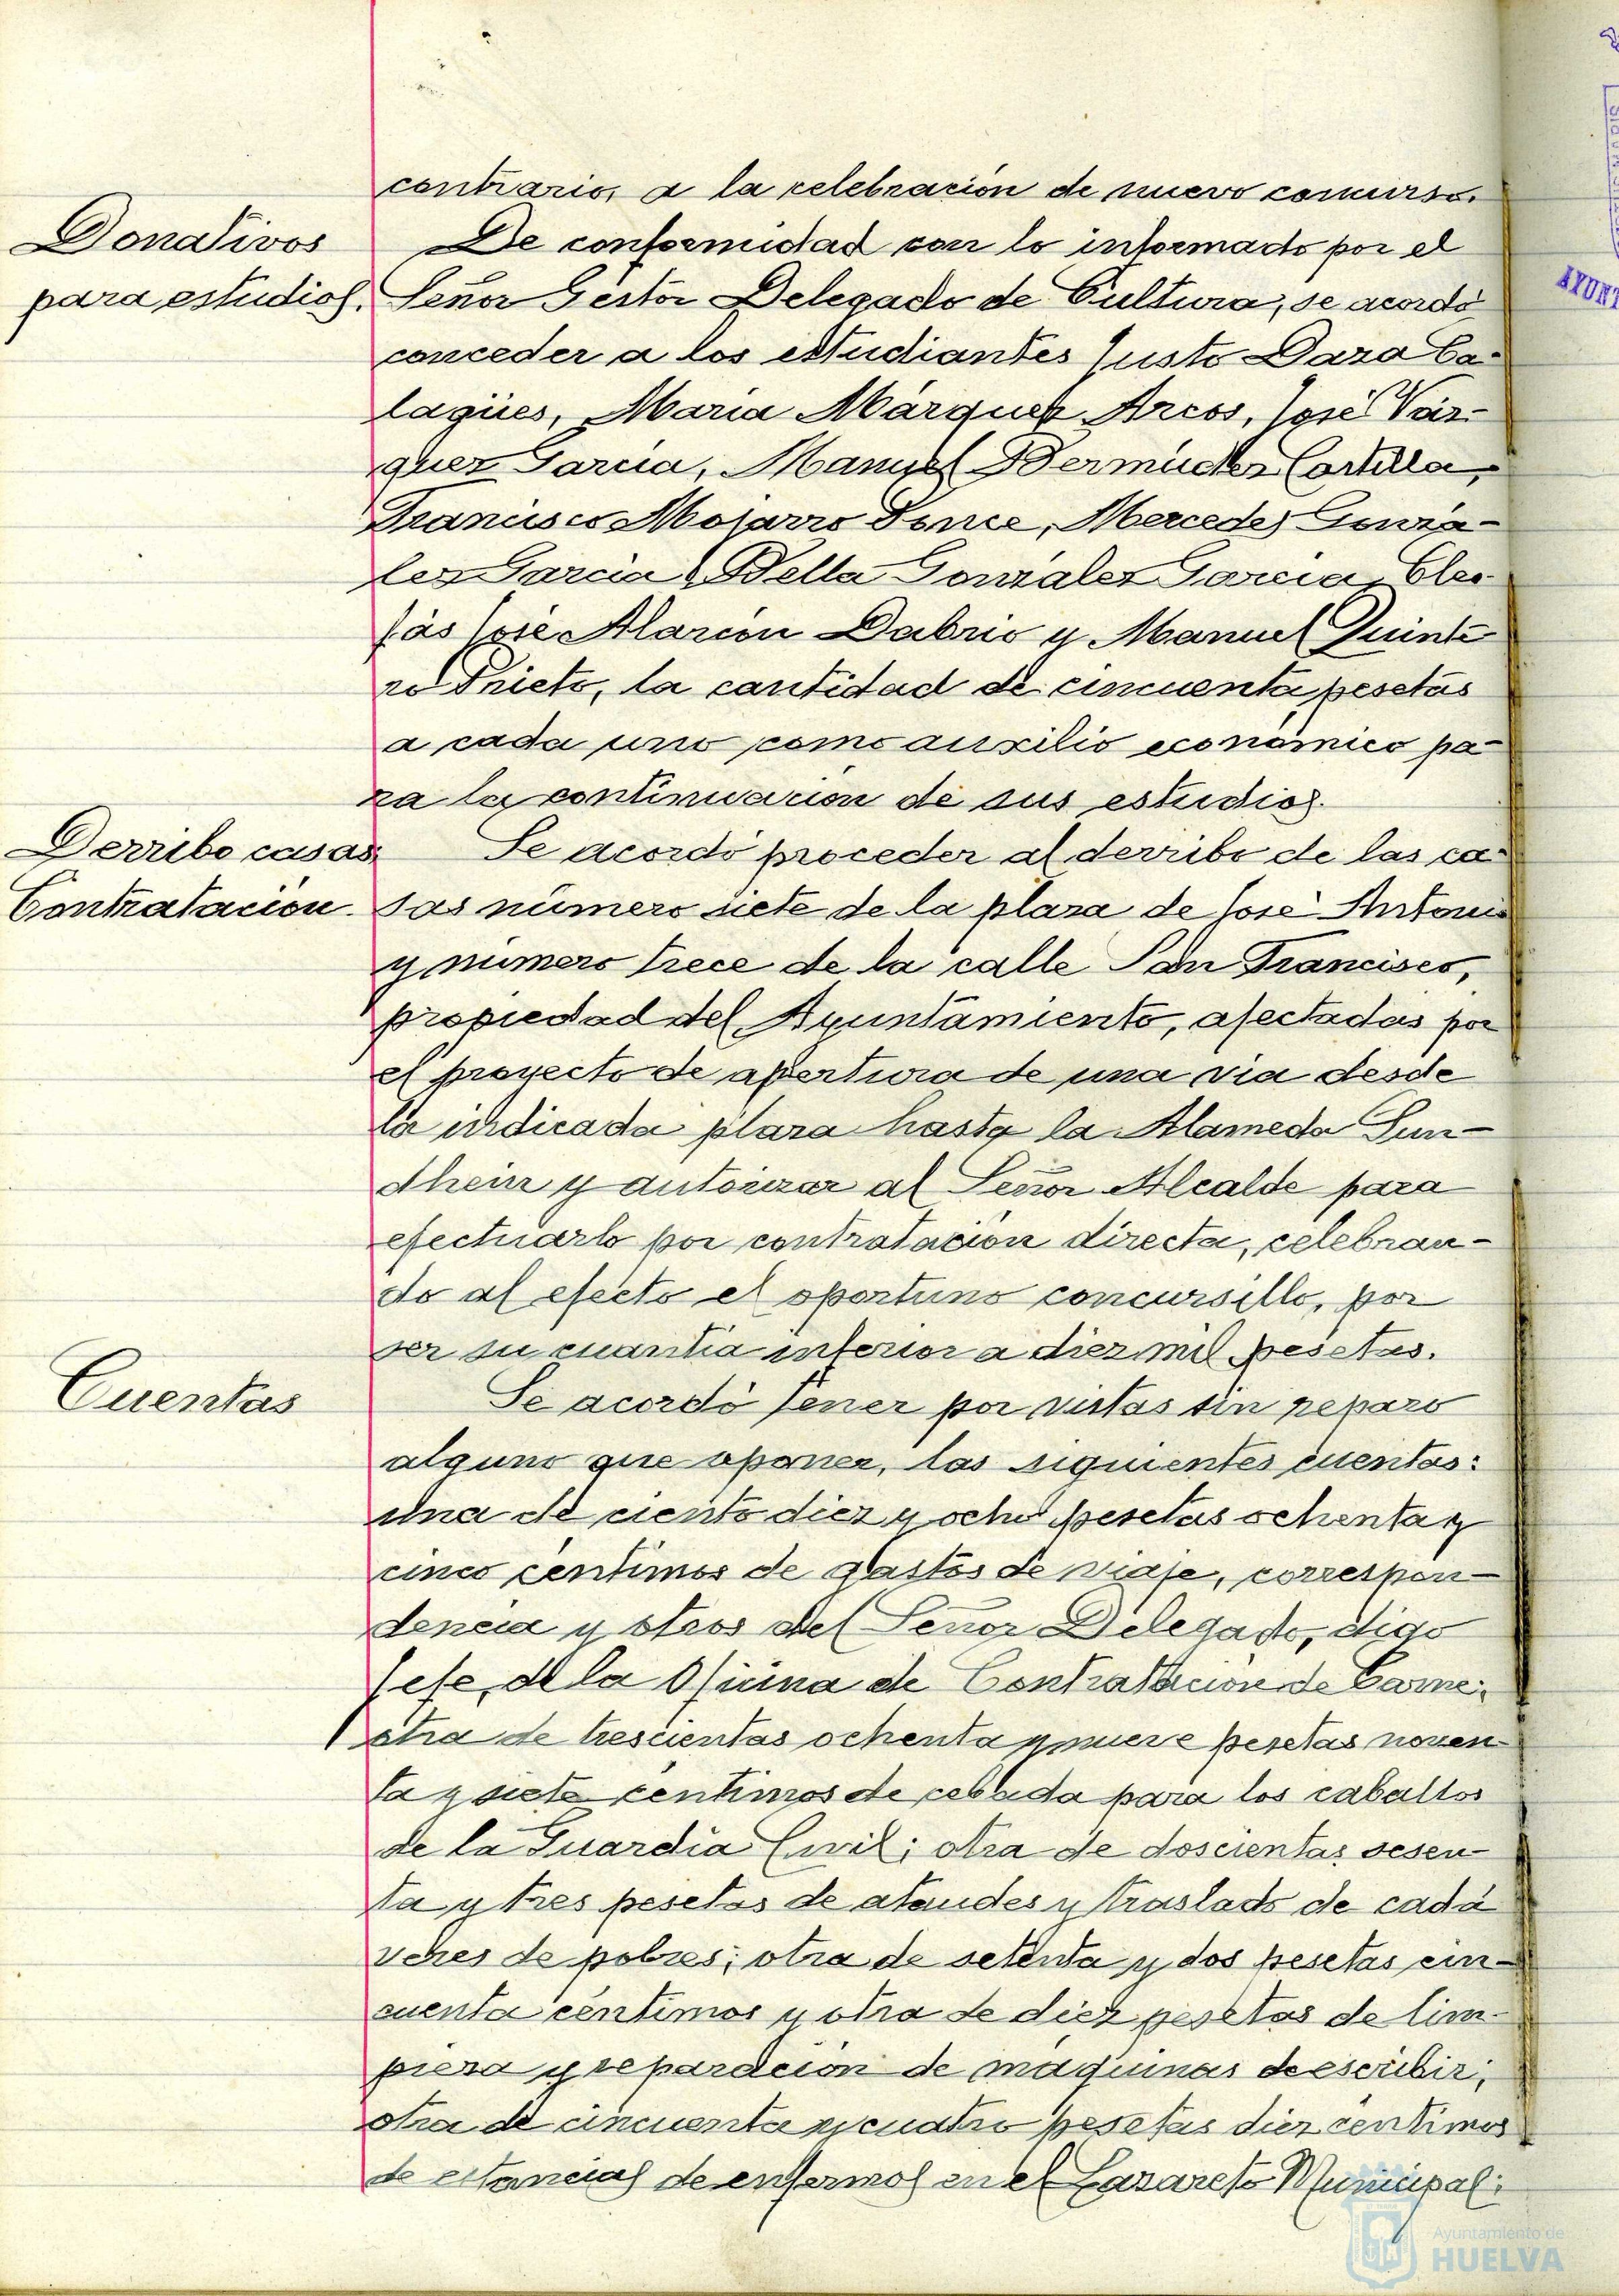 contrario, a la celebración de nuevo concurso.
Donativos
para estudios.
De conformidad con lo informado por el
Señor Gestor Delegado de Cultura, se acordó
conceder a los estudiantes Justo Daza Ca-
lagües, Maria Márquez Arcos, José Váz-
quez Garcia, Manuel Bermúdez Castilla,
Francisco Mojarro Ponce, Mercedes Gonzá-
lez Garcia, Bella Gonzalez Garcia, Cleo-
fás José Alarcón Dabrio y Manuel Quinte
ro Prieto, la cantidad de cincuenta pesetas
a cada uno como auxilio económico pa-
ra la continuación de sus estudios.
Derribo casas
Contratación.
Se acordó proceder al derribo de las ca-
sas número siete de la plaza de José Antonio
y número trece de la calle San Francisco,
propiedad del Ayuntamiento, afectadas por
el proyecto de apertura de una via desde
la indicada plaza hasta la Alameda Sun-
dhein y autorizar al Señor Alcalde para
efectuarlo por contratación directa, celebran-
do al efecto el oportuno concursillo, por
ser su cuantia inferior a diez mil pesetas.
Cuentas
Se acordó tener por vistas sin reparo
alguno que oponer, las siguientes cuentas:
una de ciento diez y ocho pesetas ochenta y
cinco céntimos de gastos de viaje, correspon-
dencia y otros del Señor Delegado, digo
Jefe, de la Oficina de Contratación de Carne;
otra de trescientas ochenta y nueve pesetas noven-
ta y siete centimos de cebada para los caballos
de la Guardia Civil; otra de doscientas sesen-
ta y tres pesetas de ataudes y traslado de cadá
veres de pobres; otra de setenta y dos pesetas cin-
cuenta céntimos y otra de diez pesetas de lim-
pieza y reparación de máquinas de escribir;
otra de cincuenta y cuatro pesetas diez centimos
de estancias de enfermos en el Lazareto Municipal;
Ayuntamiento de
HUELVA